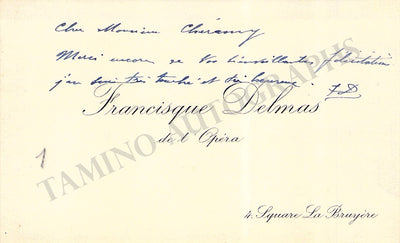 Cher Monsieur Chéramy
Merci encore de vos bienveillantes félicitations
j'en suis très touché et très heureux. FD
Francisque Delmas
de l'Opéra
1
4, Square La Bruyère
TAMINO AUTOGRAPHS